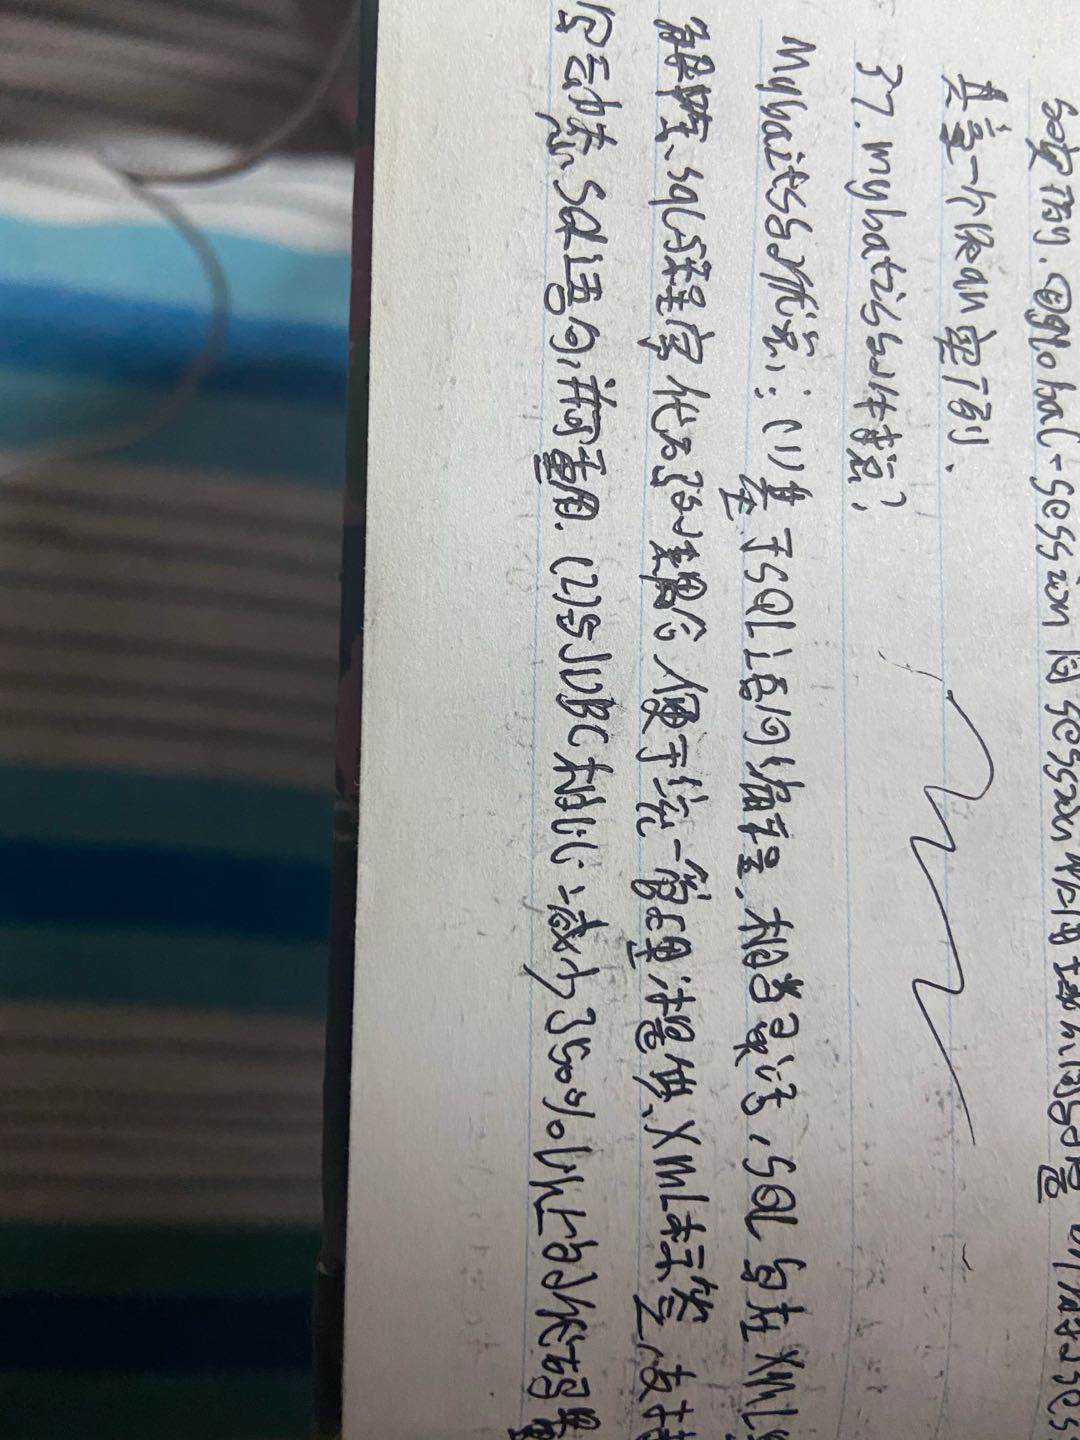 效的.④global-session同session作用域不同的是
共享一个Bean实例.
37.mybatis的优缺点?
Mybaits的优点:(1)基于SQL语句编程,相当灵活,SQL写在XML
解除sql与程序代码的耦合,便于统一管理,提供XML标签,支持
写动态SQL语句,并可重用.(2)与JDBC相比,减少了50%以上的代码量